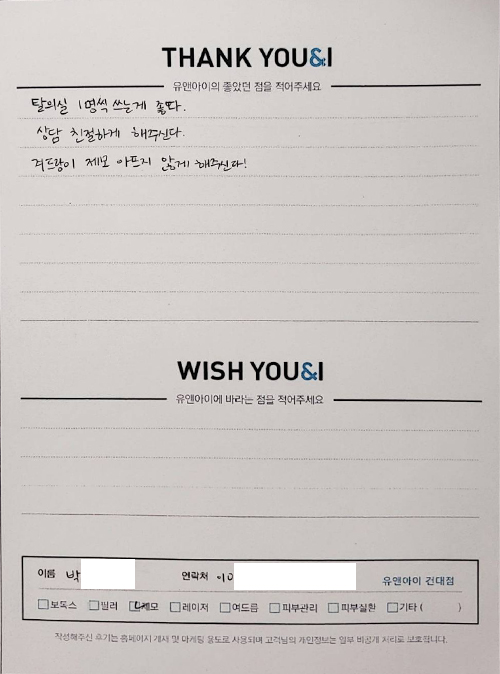 THANK YOU&I
유앤아이의 좋았던 점을 적어주세요
탈의실 1명씩 쓰는게 좋다.
상담 친절하게 해주신다.
겨드랑이 제모 아프지 않게 해주신다!
WISH YOU&I
유앤아이에 바라는 점을 적어주세요
이름 박 연락처 010 유앤아이 건대점
보톡스 필러 제모 레이저 여드름 피부관리 피부질환 기타 ( )
작성해주신 후기는 홈페이지 게재 및 마케팅 용도로 사용되며 고객님의 개인정보는 일부 비공개 처리로 보호됩니다.